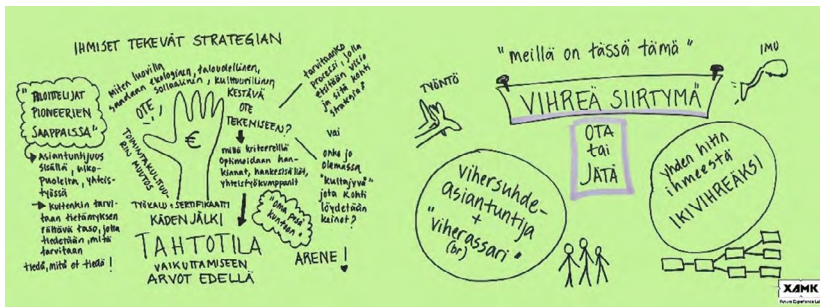 IHMISET TEKEVÄT STRATEGIAN
"ALOITTELIJAT
PIONEERIEN
SAAPPAISSA"
Asiantuntijuus
sisällä, ulko-
puolelta, yhteis-
työssä
Kuitenkin tarvi-
taan tietämyksen
riittävä taso, jolla
tiedetään, mitä
tarvitaan
tiedä, mitä et tiedä!
Miten luovilla
saadaan ekologinen, taloudellinen,
sosiaalinen, kulttuurillinen
KESTÄVÄ
OTE
TEKEMISEEN?
OTE
€
TOIMINTAKULTTUU-
RIN MUUTOS
millä kriteereillä
Optimoidaan han-
kinnat, hankesisällöt,
yhteistyökumppanit
TYÖKALU + SERTIFIKAATTI
KÄDEN JÄLKI
TAHTOTILA
VAIKUTTAMISEEN
ARVOT EDELLÄ
"Oma pesä
kuntoon"
ARENE!
tarvitaanko
prosessi, jolla
etsitään visio
ja sitä kohti
strategia?
vai
onko jo
olemassa
"Kultajyvä"
jota kohti
löydetään
keinot?
"meillä on tässä tämä"
TYÖNTÖ
IMU
VIHREÄ SIIRTYMÄ
OTA
tai
JÄTÄ
vihersuhde-
asiantuntija
+
"viherassari"
(br)
yhden hitin
ihmeestä
IKIVIHREÄKSI
XAMK
Future Experience Lab